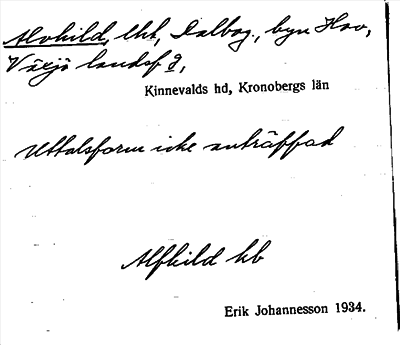 Alvhild, lht, Dalbog., byn Hov,
Växjö landsf 9,
Kinnevalds hd, Kronobergs län
Uttalsform icke anträffad
Alfhild hb
Erik Johannesson 1934.